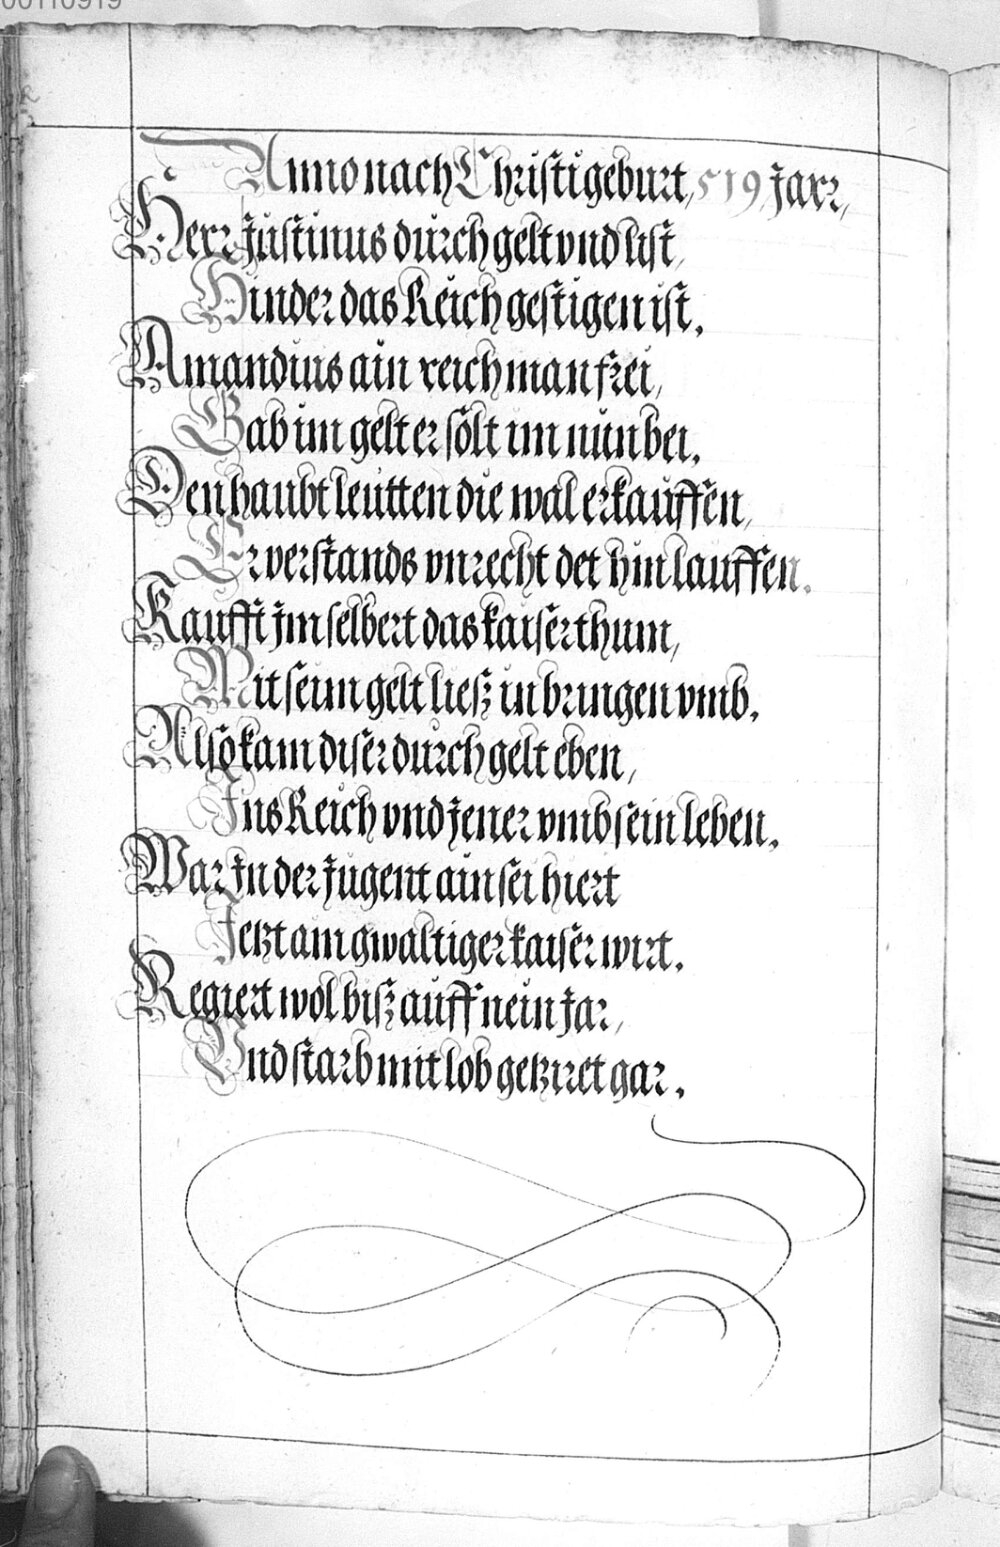 00110919
Anno nach Christi geburt, 519 Jarr,
Herr Justinus durch gelt vnd list,
Hinder das Reich gestigen ist.
Amandius ain reich man frei,
Gab im gelt er solt im nun bei.
Den haubtleutten die wal erkauffen,
Er verstands vnrecht det hin lauffen.
Kaufft jm selbert das kaiserthum,
Mit seim gelt liesz in bringen vmb.
Also kam diser durch gelt eben,
Ins Reich vnd jener vmb sein leben.
War In der Jugent ain sei hiert
Jetzt ain gwaltiger kaiser wirt.
Regiert wol bisz auff nein Jar,
Vnd starb mit lob getziret gar.